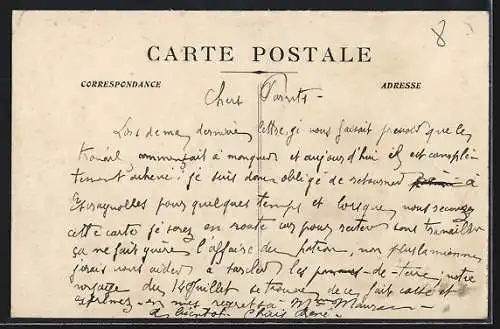 8
CARTE POSTALE
CORRESPONDANCE
ADRESSE
Chers Parents -
Lors de ma dernière lettre, je vous faisait prévoir que le
travail commençait à manquer et aujourd'hui il est complè
tement achevé : je suis donc obligé de retourner à
pour quelques temps et lorsque vous recevrez
cette carte je serez en route car pour rester sans travailler
ça ne fait guère l'affaire du patron, non plus la mienne
j'irais vous aider à sarcler les pommes-de-terre ; notre
voyage du 14 Juillet se trouve de ce fait cassé et
exprimez-en mes regrets à Mme
à bientôt